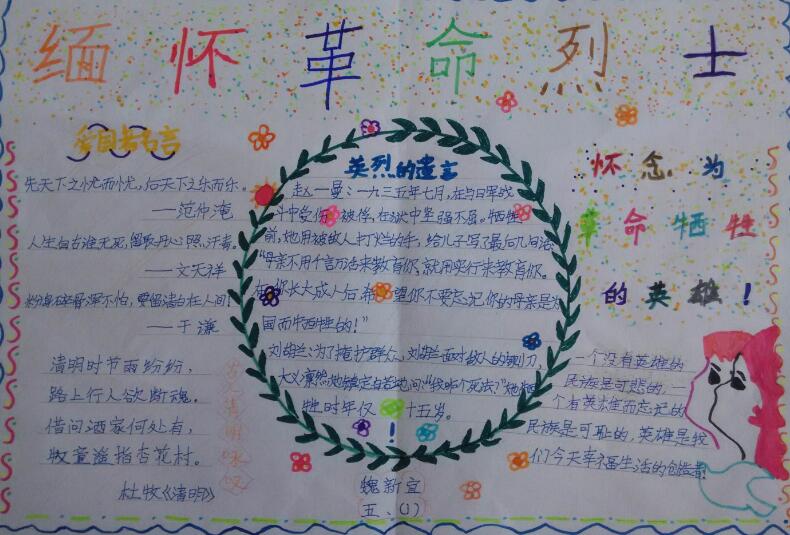 缅怀革命烈士
爱国者名言
先天下之忧而忧，后天下之乐而乐。
——范仲淹
人生自古谁无死，留取丹心照汗青。
——文天祥
粉骨碎身浑不怕，要留清白在人间！
——于谦
清明时节雨纷纷，
路上行人欲断魂。
借问酒家何处有，
牧童遥指杏花村。
杜牧《清明》
英烈的遗言
赵一曼：一九三五年七月，在与日军战
斗中受伤被俘，在狱中坚强不屈。牺牲
前，她用被敌人打烂的手，给儿子写了最后几句话
"母亲不用千言万语来教育你，就用实行来教育你。
在你长大成人后希望你不要忘记你的母亲是为
国而牺牲的！"
刘胡兰：为了掩护群众，刘胡兰面对敌人的铡刀
大义凛然，她镇定自若地问："我咋个死法？"她牺
牲时年仅十五岁。
！
魏新宜
五、(1)
怀念为
革命牺牲
的英雄！
一个没有英雄的
民族是可悲的，一
个有英雄而忘记的
民族是可耻的，英雄是我
们今天幸福生活的创造者！